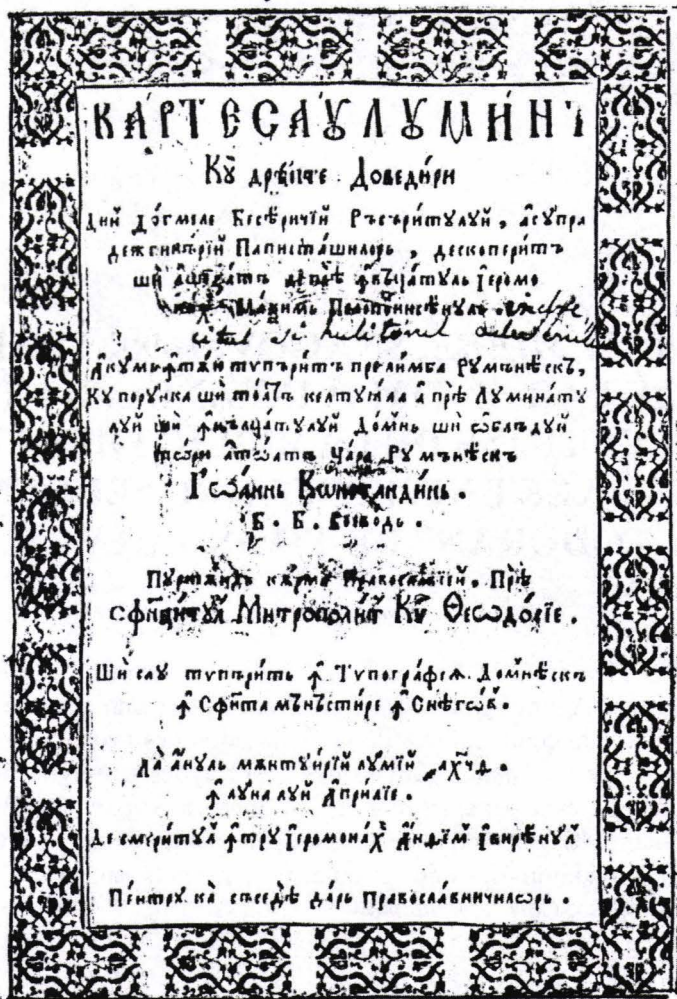 КА́РТЕ СА́Ȣ ЛȢМИ́НЪ
Кꙋ дрѣпте Доведи́ри
дин до́гмеле Бесѣ́ричїй Ръсъри́тꙋлꙋй, асꙋпра
дежбинърїй Паписташилорь, дескопери́тъ
ши ашꙋзатъ дѣпрѣ ꙟвъца́тꙋль їеромо
нахъ Ма́ѯимъ Пелопонисѣнꙋль.
Акꙋмь ꙟтѫи типъри́тъ прелимба Рꙋмънѣскъ,
Кꙋ порꙋнка ши тоатъ келтꙋѧла а прѣ Лꙋмина́тꙋ
лꙋй ши ꙟнълца́тꙋлꙋй До́мнь ши ѡблъдꙋй
то́рю а то́атъ Цара Рꙋмънѣскъ
Іѡа́ннь Кѡнстандинь.
Б. Б. Воевода.
Пꙋртѫндь кѫрма Православїей, Прѣ
сфинци́тꙋл Митрополи́т Кѵ̈р Ѳеѡдо́сїе.
Ши сау типъри́ть ꙟ Типографїѧ Домнѣскъ
ꙟ Сфи́нта мънъсти́ре ꙟ Снѣго́в.
Ла анꙋль мѫнтꙋи́рїй лꙋмїй ҂ахч҃ѳ.
ꙟ лꙋна лꙋй Апри́лїе.
Де смери́тꙋл ꙟтрꙋ їеромона́х А́нѳїм їви́рѣнꙋл
Пе́нтрꙋ ка съседѣ дарь православничилѡрь.